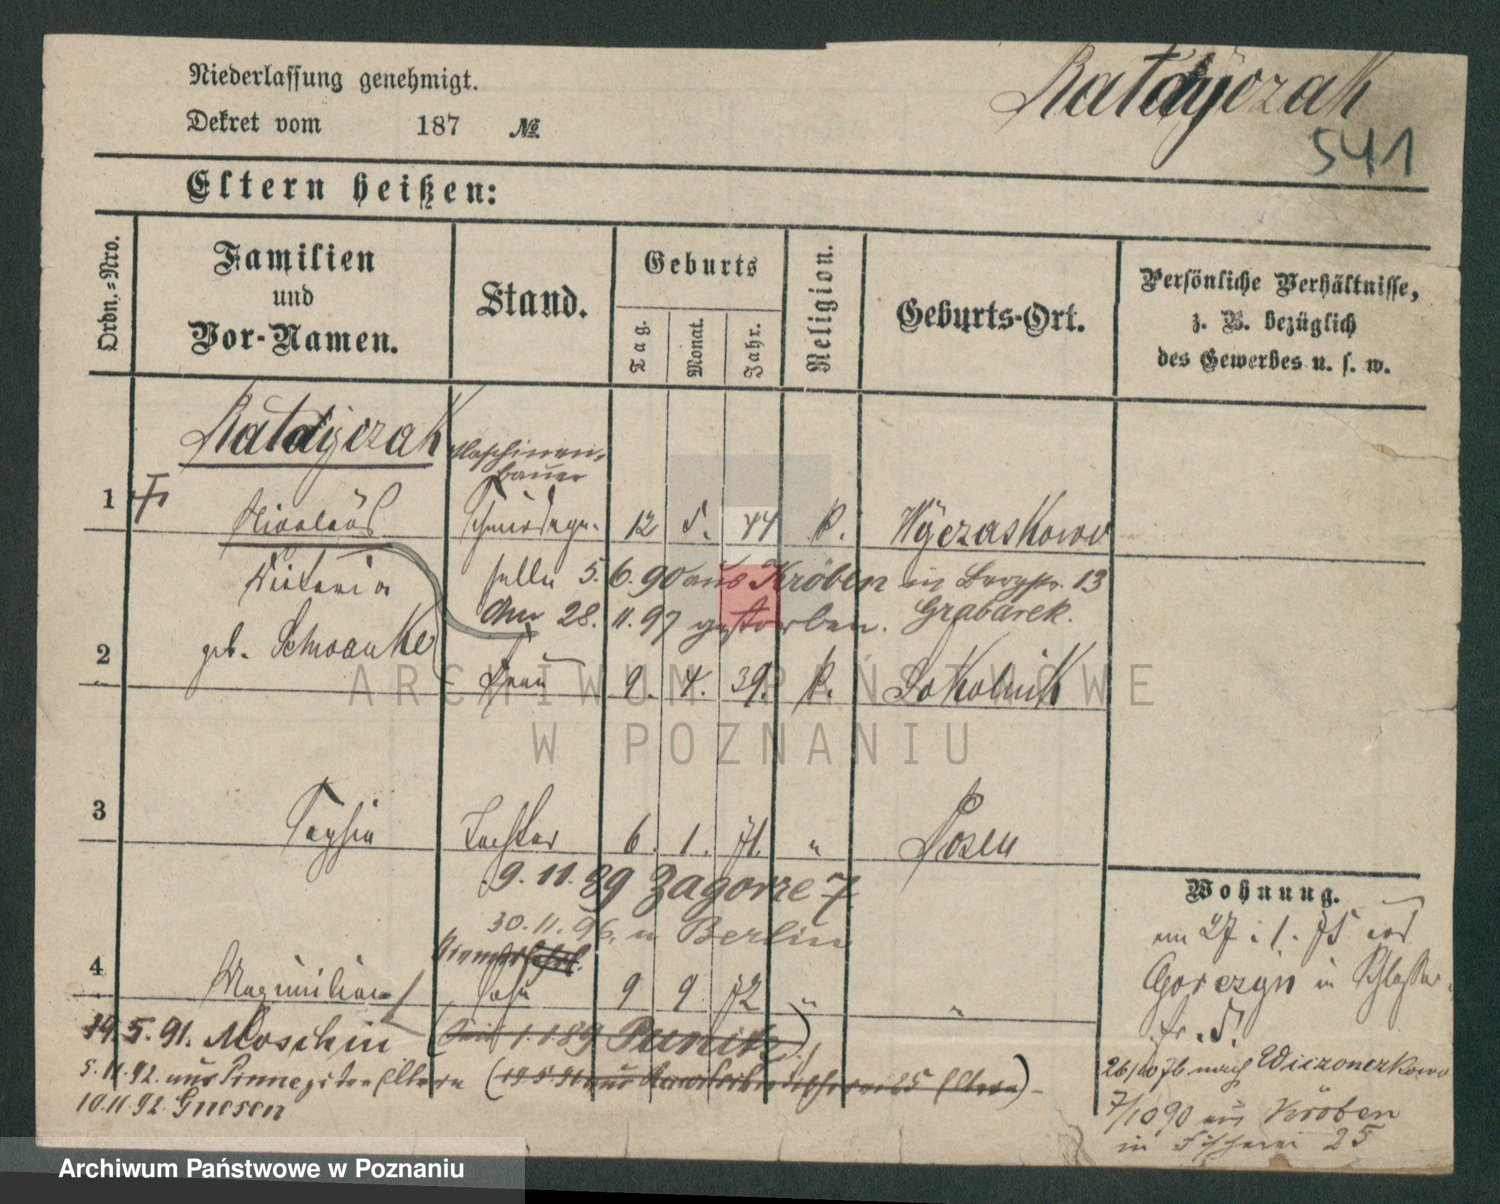 Niederlassung genehmigt.
Dekret vom 187 №
Ratajczak
541
Eltern heißen:
Ordn.-Nro.
Familien
und
Vor-Namen.
Stand.
Geburts
Tag.
Monat.
Jahr.
Religion.
Geburts-Ort.
Persönliche Verhältnisse,
z. B. bezüglich
des Gewerbes u. s. w.
Ratajczak
Maschinen-
bauer
1 Nicolaus 12 5. 44 K.
Victoria 5. 6. 90 aus Kröben in 13
Am 28. 11. 97 gestorben. Grabarek.
2 geb. Schwanke Frau 9. 4. 39. K. Sokolnik
ARCHIWUM PAŃSTWOWE
W POZNANIU
3 Tochter 6. 1. 71. " Posen
9. 11. 89 Zagorze 7
30. 11. 96. n Berlin
Wohnung.
27. 1. 75
4 Maximilian Sohn 9 9 72 " "
Gorczyn in
19. 5. 91. Moschin 1. 1 89 Punitz
5. 11. 92. aus Eltern
26/10 76 nach
10. 11. 92 Gnesen
7/10 90 aus Kröben
in Fischerei 25
Archiwum Państwowe w Poznaniu